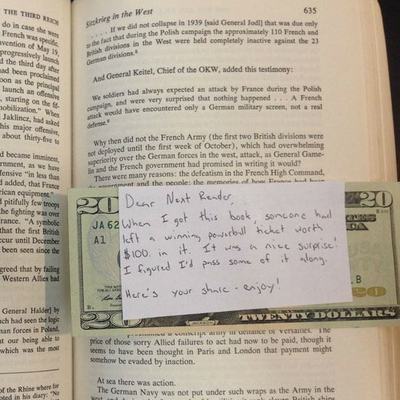 THE THIRD REICH
Sitzkrieg in the West
635
do in case she were
French was specific.
nvention of May 19,
progressively launch
the third day after
had been proclaimed
soon as the principal
launch an offensive
, starting on the fif-
mobilization." When
l Jaklincz, had asked
this major offensive,
about thirty-five to
became imminent,
ernment, as we have
added, that France
merican equipment."
d pitifully few troops
the fighting was over
. "A symbolic
that the first British
ccur until December
been seen since the
greed that by failing
Western Allies had
General Halder] by
had seen the logic
an forces in Poland,
which was the most
of the Rhine where for
. . . . If we did not collapse in 1939 [said General Jodl] that was due only
to the fact that during the Polish campaign the approximately 110 French and
British divisions in the West were held completely inactive against the 23
German divisions.⁶
And General Keitel, Chief of the OKW, added this testimony:
We soldiers had always expected an attack by France during the Polish
campaign, and were very surprised that nothing happened . . . A French
attack would have encountered only a German military screen, not a real
defense.
Why then did not the French Army (the first two British divisions were
not deployed until the first week of October), which had overwhelming
superiority over the German forces in the west, attack, as General Game-
lin and the French government had promised in writing it would?
There were many reasons: the defeatism in the French High Command,
the government and the people; the memories of how France had been
20
JA 62
A1
Dear Next Reader,
When I got this book, someone had
left a winning powerbull ticket worth
$100. in it. It was a nice surprise!
I figured I'd pass some of it along.
Here's your share - enjoy!
20
20
TWENTY DOLLARS
a conscript army in defiance of Versailles. The
price of those sorry Allied failures to act had now to be paid, though it
seems to have been thought in Paris and London that payment might
somehow be evaded by inaction.
At sea there was action.
The German Navy was not put under such wraps as the Army in the